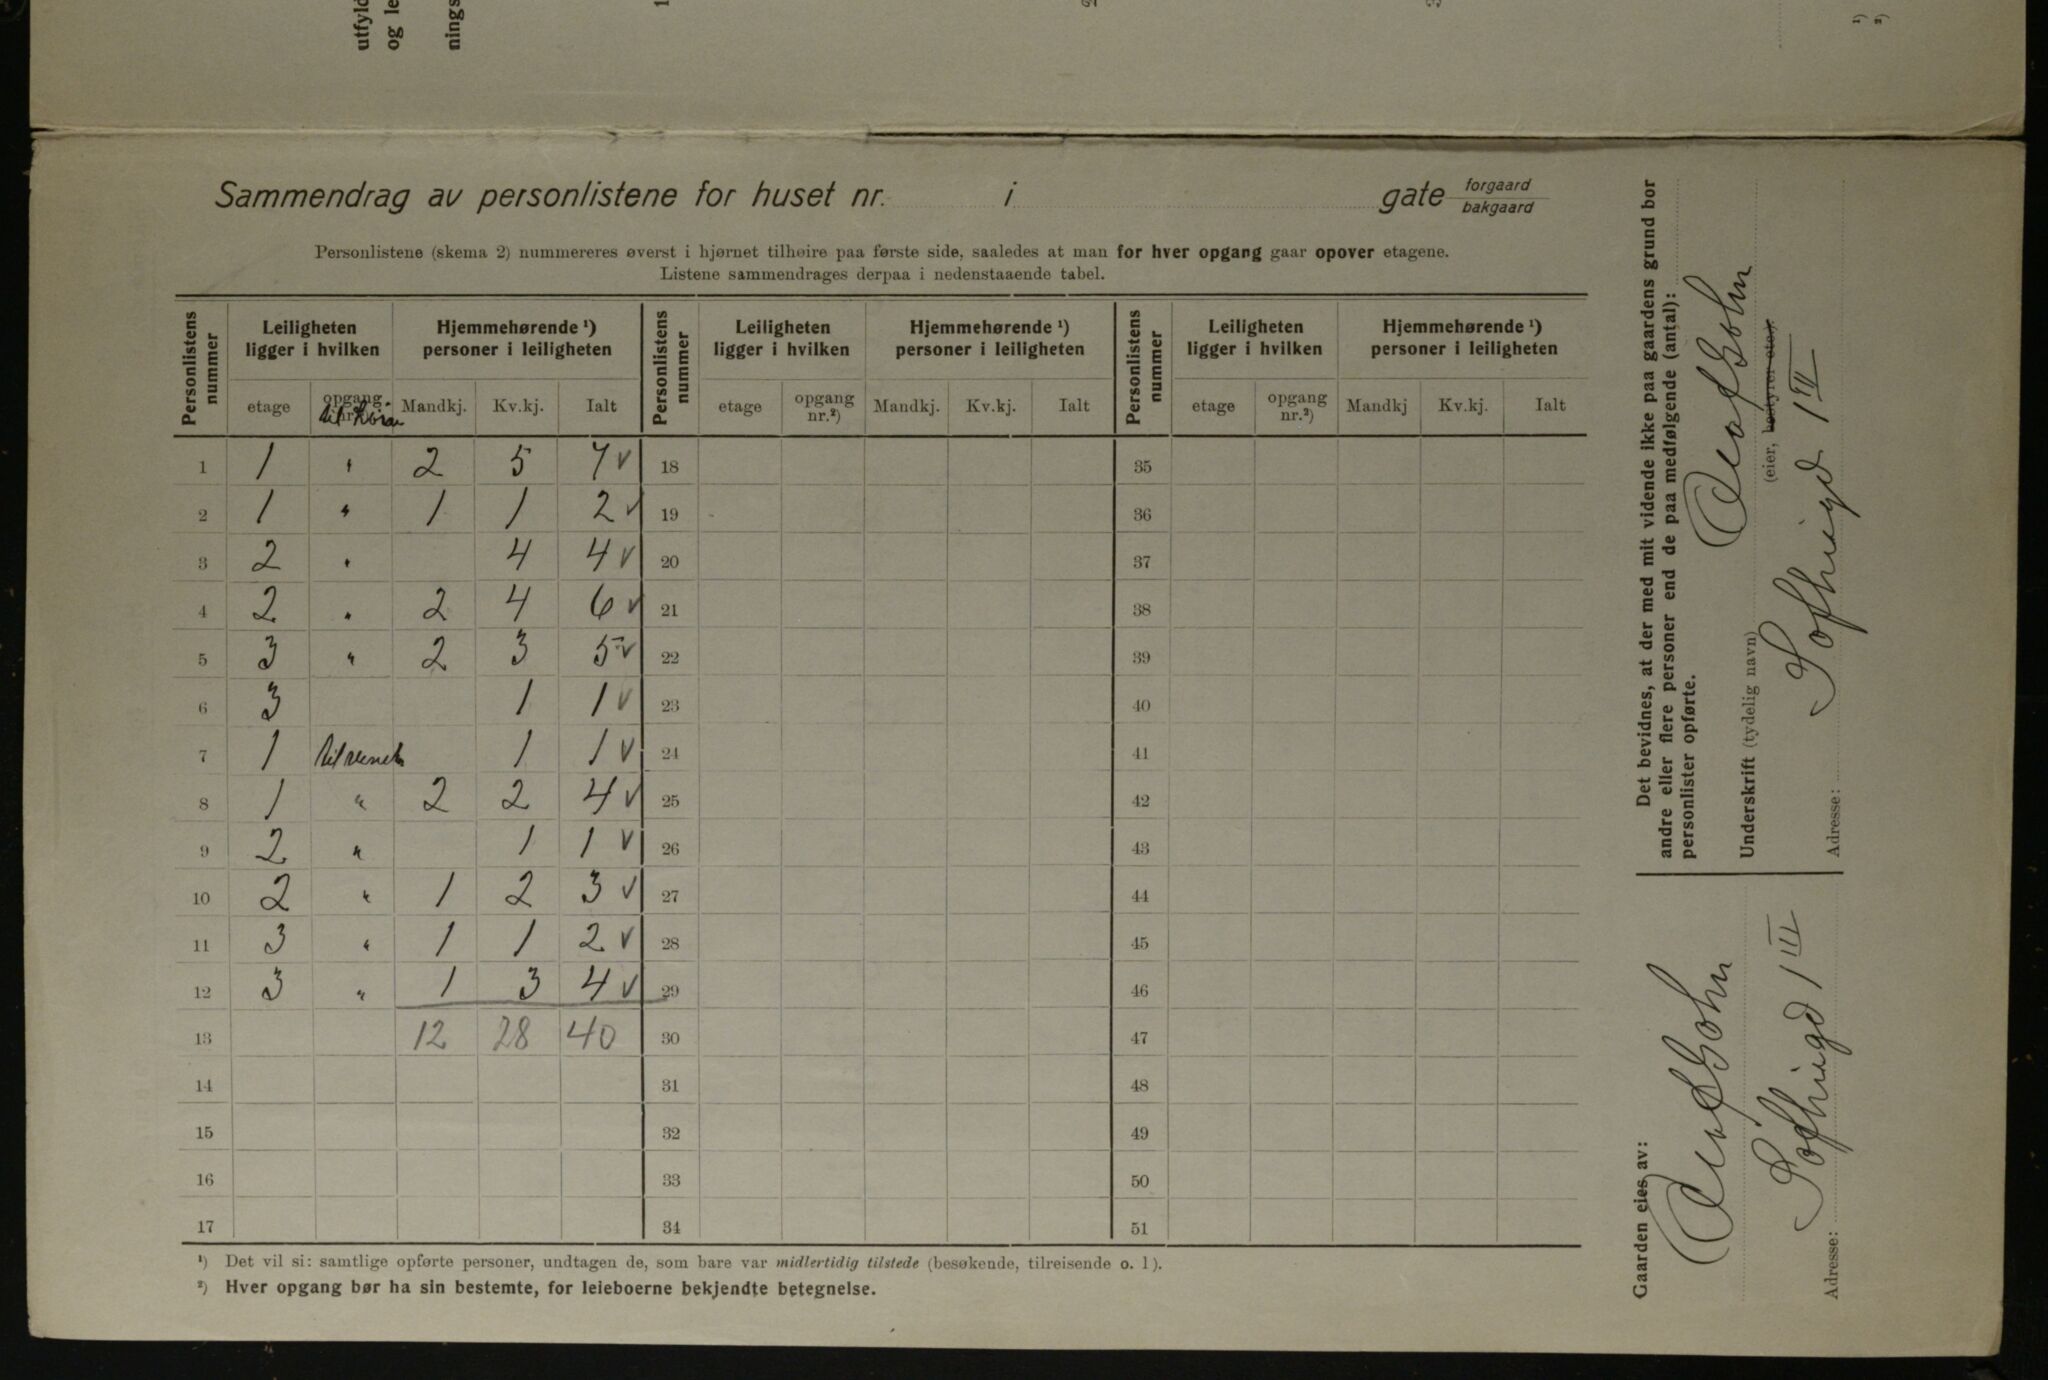 utfyld
og le
nings
1
2
3
¹)
²)
Sammendrag av personlistene for huset nr. i gate forgaard
bakgaard
Personlistene (skema 2) nummereres øverst i hjørnet tilhøire paa første side, saaledes at man for hver opgang gaar opover etagene.
Listene sammendrages derpaa i nedenstaaende tabel.
Personlistens nummer Leiligheten ligger i hvilken Hjemmehørende ¹) personer i leiligheten Personlistens nummer Leiligheten ligger i hvilken Hjemmehørende ¹) personer i leiligheten Personlistens nummer Leiligheten ligger i hvilken Hjemmehørende ¹) personer i leiligheten
etage opgang nr.²) Mandkj. Kv.kj. Ialt etage opgang nr.²) Mandkj. Kv.kj. Ialt etage opgang nr.²) Mandkj Kv.kj. Ialt
1 1 " 2 5 7 ✓ 18 35
2 1 " 1 1 2 ✓ 19 36
3 2 " 4 4 ✓ 20 37
4 2 " 2 4 6 ✓ 21 38
5 3 " 2 3 5 ✓ 22 39
6 3 1 1 ✓ 23 40
7 1 til 1 1 ✓ 24 41
8 1 " 2 2 4 ✓ 25 42
9 2 " 1 1 ✓ 26 43
10 2 " 1 2 3 ✓ 27 44
11 3 " 1 1 2 ✓ 28 45
12 3 " 1 3 4 ✓ 29 46
13 12 28 40 30 47
14 31 48
15 32 49
16 33 50
17 34 51
¹) Det vil si: samtlige opførte personer, undtagen de, som bare var midlertidig tilstede (besøkende, tilreisende o. l).
²) Hver opgang bør ha sin bestemte, for leieboerne bekjendte betegnelse.
Det bevidnes, at der med mit vidende ikke paa gaardens grund bor
andre eller flere personer end de paa medfølgende (antal):
personlister opførte.
Underskrift (tydelig navn)
(eier, bestyrer etc.).
Adresse: 1 III
Gaarden eies av:
Adresse: 1 III